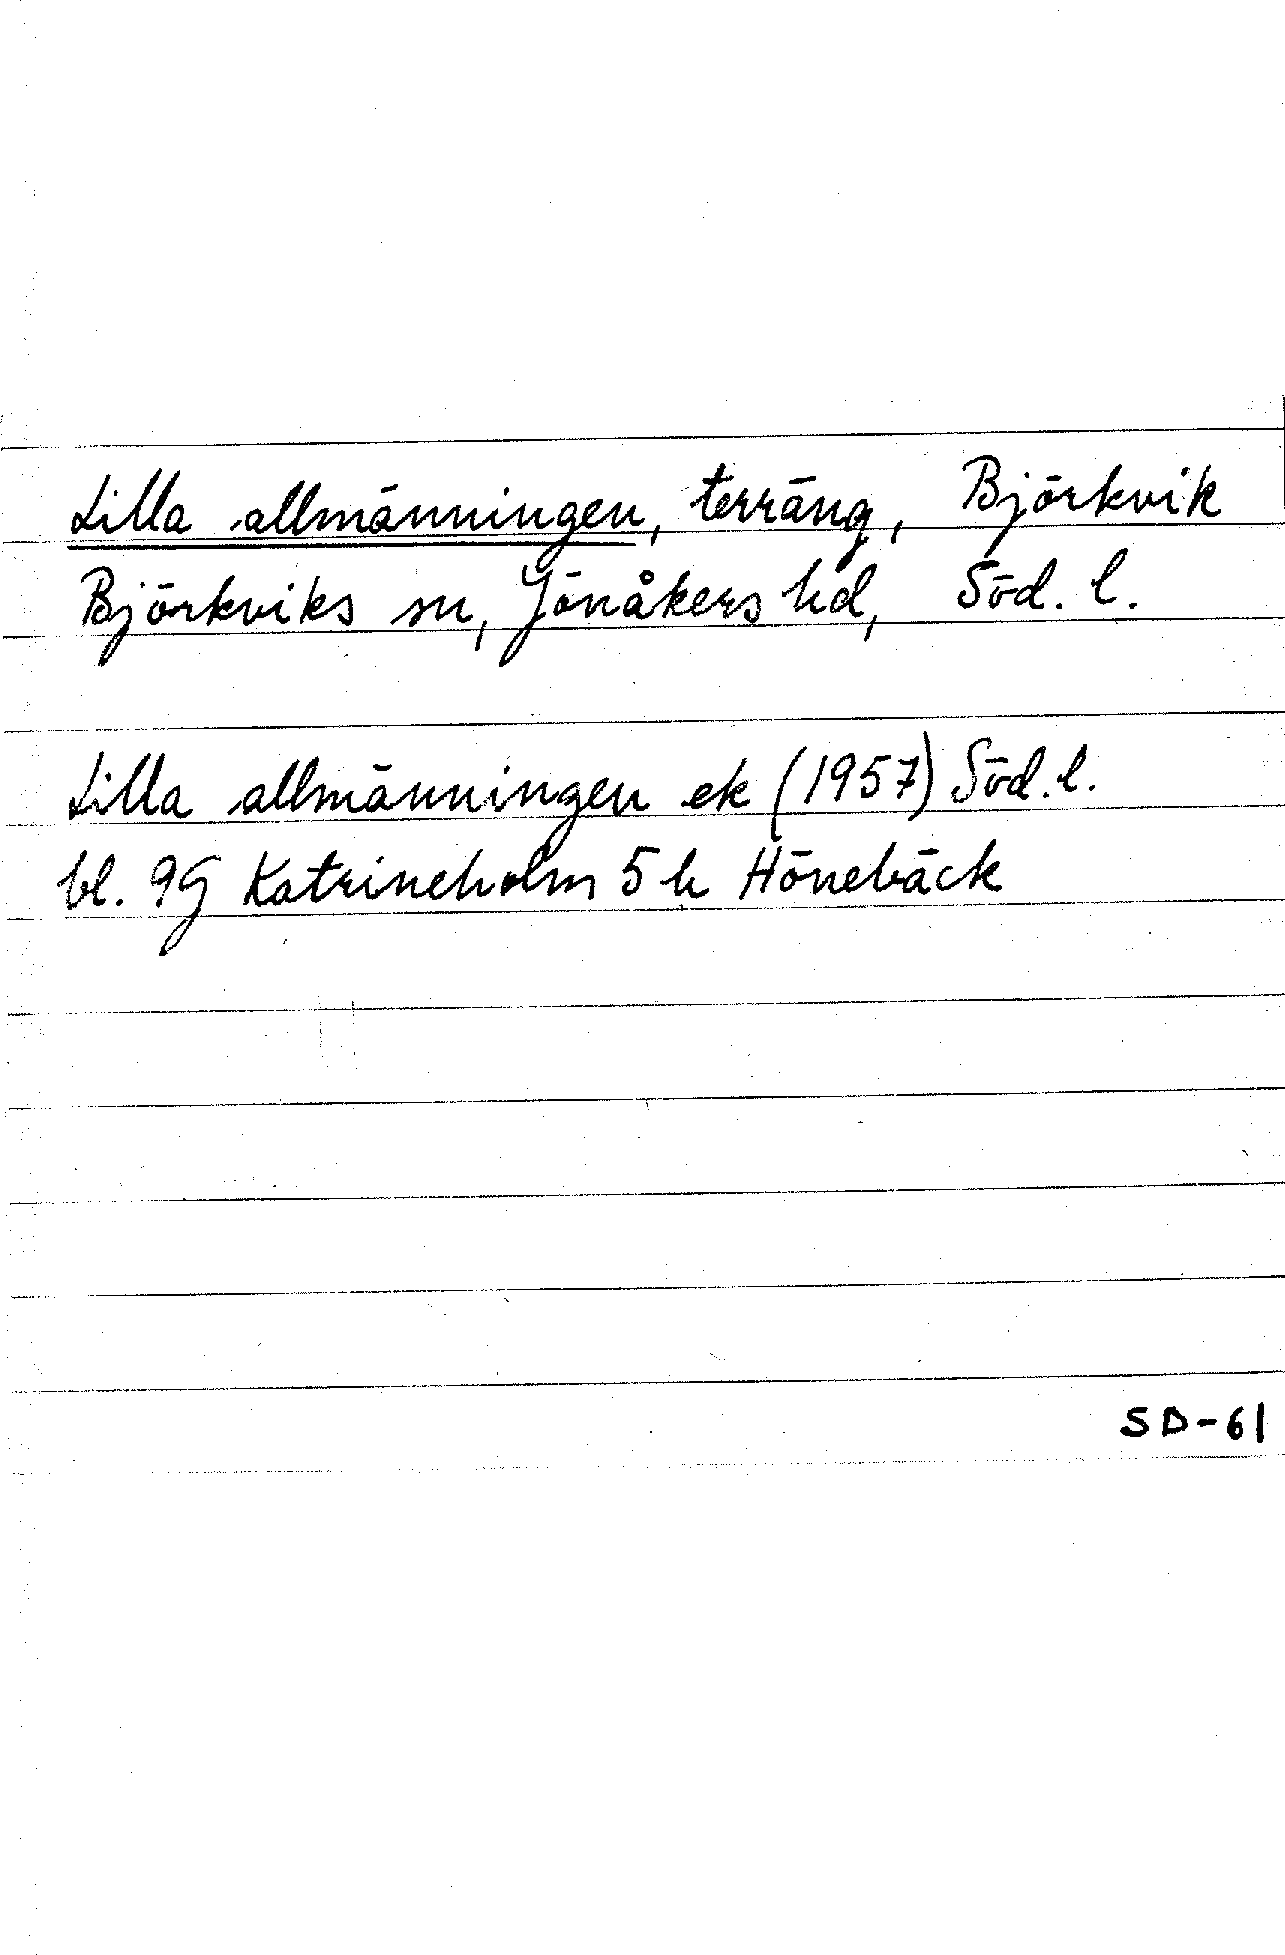 Lilla allmänningen, terräng, Björkvik
Björkviks sn, Jönåkers hd, Söd. l.
Lilla allmänningen ek (1957) Söd. l.
bl. 9G Katrineholm 5 h Hönebäck
SD-61